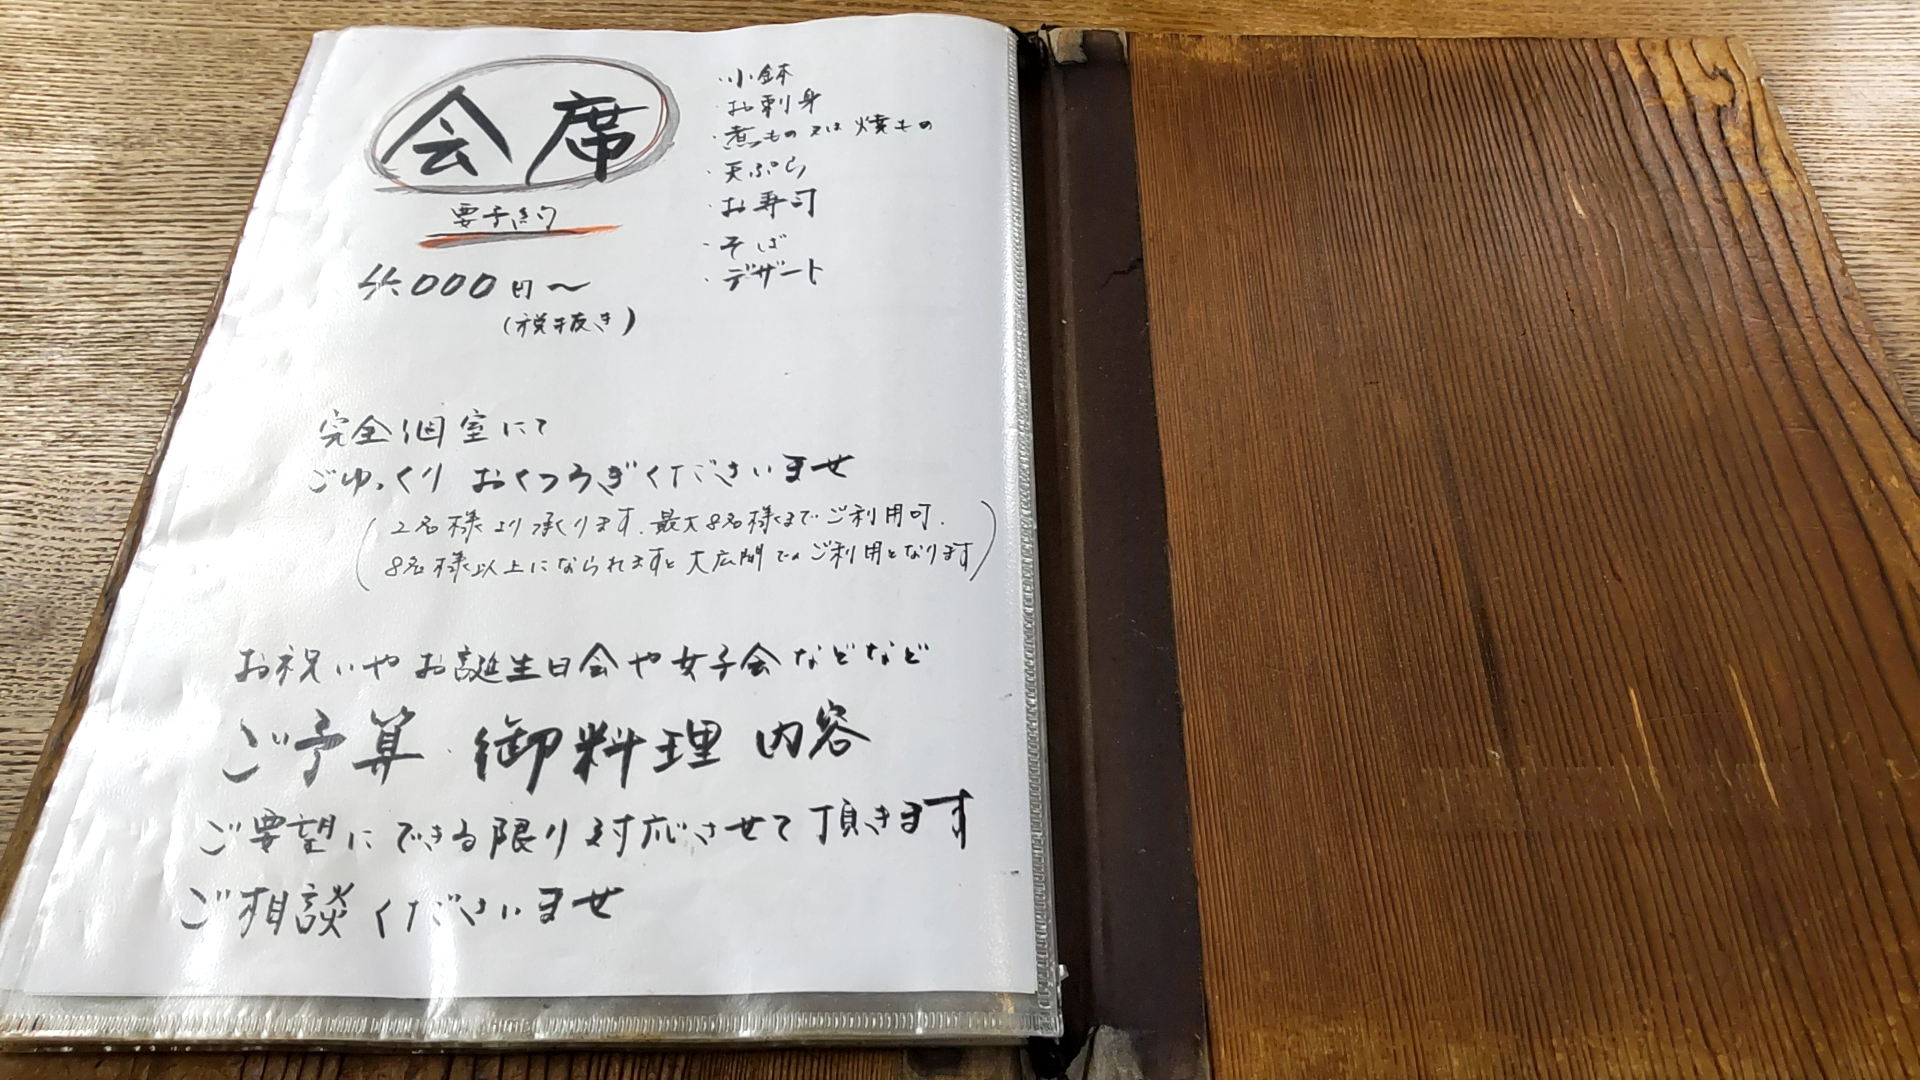 会席
要予約
4,000円〜
(税抜き)
・小鉢
・お刺身
・煮もの又は焼もの
・天ぷら
・お寿司
・そば
・デザート
完全個室にて
ごゆっくり おくつろぎくださいませ
(2名様より承ります.最大8名様までご利用可.
8名様以上になられますと大広間でのご利用となります)
お祝いやお誕生日会や女子会などなど
ご予算・御料理内容
ご要望にできる限り対応させて頂きます
ご相談くださいませ